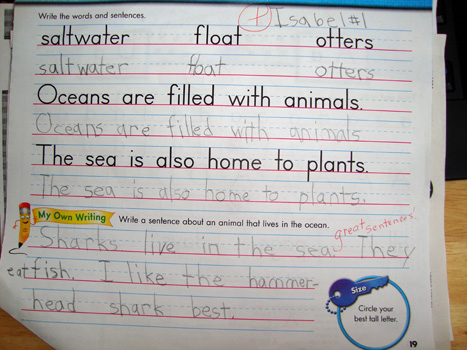 Write the words and sentences. + Isabel #1
saltwater float otters
saltwater float otters
Oceans are filled with animals.
Oceans are filled with animals
The sea is also home to plants.
The sea is also home to plants.
My Own Writing Write a sentence about an animal that lives in the ocean.
great sentences!
Sharks live in the sea. They
eat fish. I like the hammer-
head shark best.
Size
Circle your
best tall letter.
19